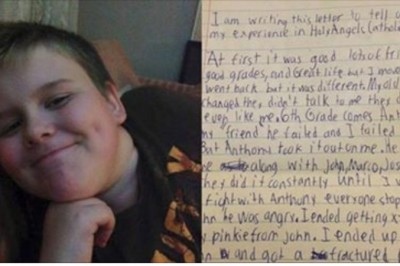 I am writing this letter to tell u
my experience in Holy Angels Catholic
At first it was good lots of fri
good grades, and great life, but I moved
went back but it was different. My old
changed they didn't talk to me they d
even like me. 6th Grade comes Anth
s friend he failed and I failed
But Anthony took it out on me. He
me along with John, Marco, Jos
they did it constantly until I w
fight with Anthony everyone stop
hn he was angry. I ended getting
y pinkie from John. I ended up
and got a fractured